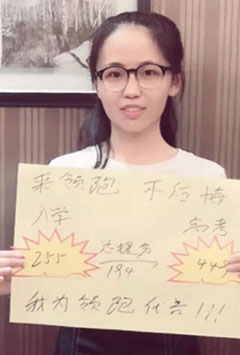 来领跑 不后悔
入学 高考
255 总提分 194 449
我为领跑代言!!!